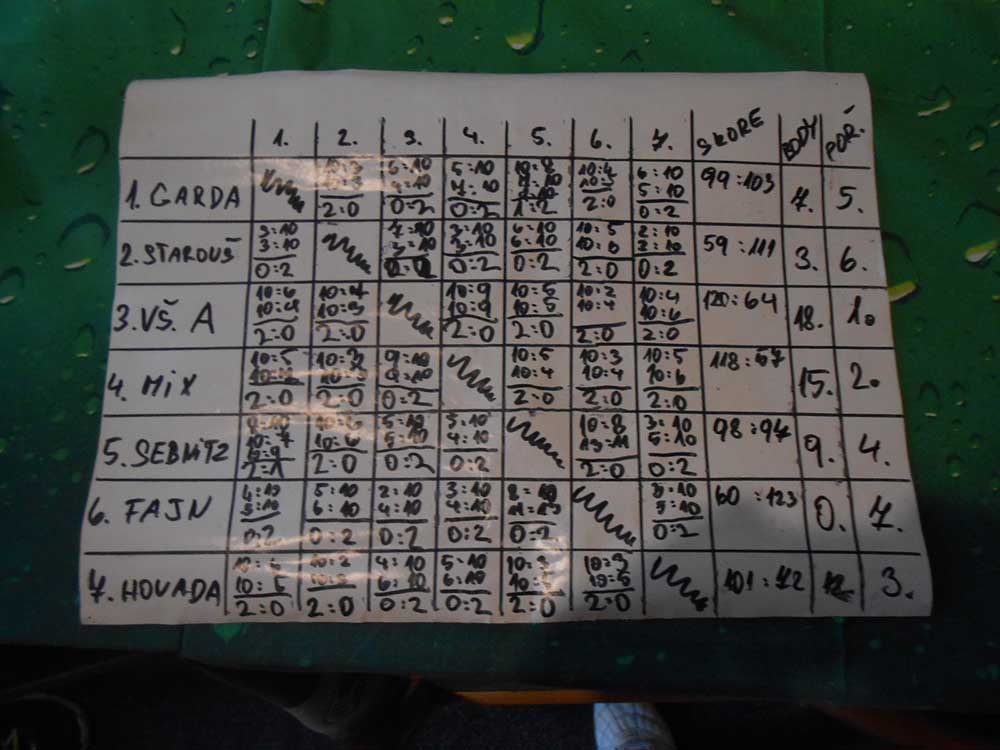 1. 2. 3. 4. 5. 6. 7. SKORE BODY POŘ.
1. GARDA 6:10 5:10 10:8 10:4 6:10 99:103 7. 5.
4:10 7:10 10:3 5:10
2:0 0:2 0:2 1:2 2:0 0:2
2. STAROUŠ 3:10 7:10 3:10 6:10 10:5 2:10 59:111 3. 6.
3:10 3:10 3:10 6:10
0:2 0:2 0:2 2:0 0:2
3. VŠ. A 10:6 10:7 10:9 10:5 10:2 10:4 120:64 18. 1.
10:4 10:3 10:9 10:5 10:4 10:6
2:0 2:0 2:0 2:0 2:0 2:0
4. MIX 10:5 9:10 10:5 10:3 10:5 118:57 15. 2.
9:10 10:4 10:4 10:6
2:0 2:0 0:2 2:0 2:0 2:0
5. SEBNITZ 8:10 10:6 5:10 5:10 10:8 3:10 98:97 9. 4.
10:7 10:6 5:10 4:10 13:11 5:10
2:1 2:0 0:2 0:2 2:0 0:2
6. FAJN 4:10 5:10 2:10 3:10 8:10 60:123 0. 7.
3:10 6:10 4:10 4:10 11:13
0:2 0:2 0:2 0:2 0:2 0:2
7. HOVADA 10:6 10:2 4:10 5:10 10:3 10:3 101:72 12 3.
10:5 6:10 6:10 10:5 10:5
2:0 2:0 0:2 0:2 2:0 2:0